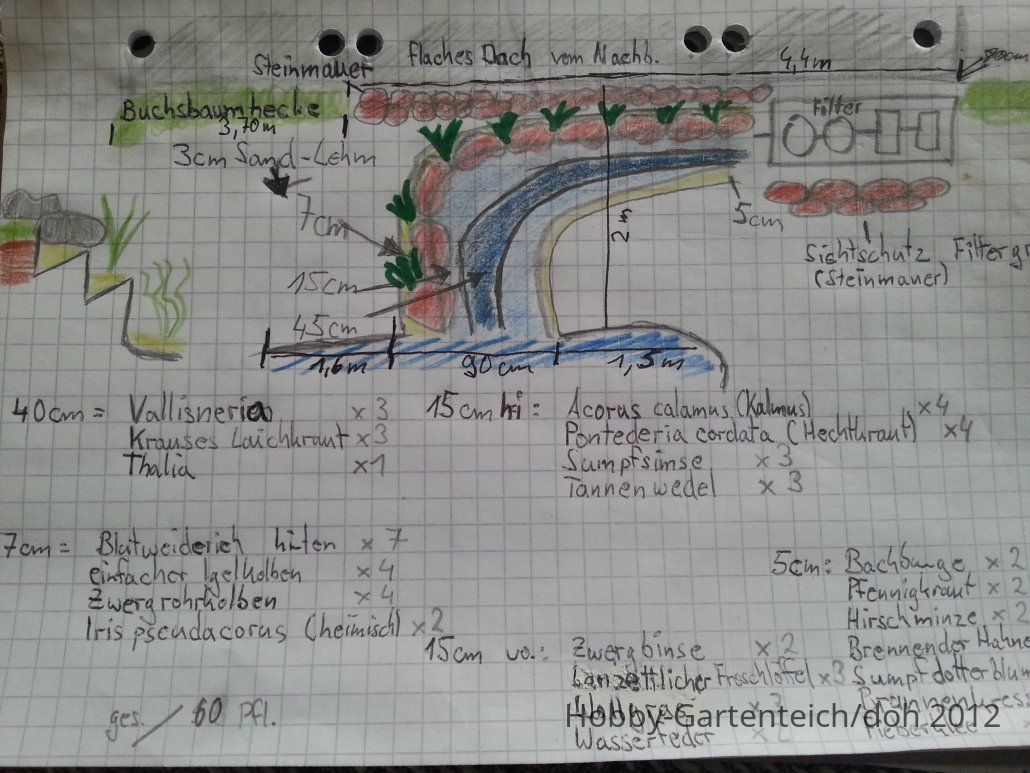 flaches Dach vom Nachb.
4,4m
Steinmauer
Filter
Buchsbaumhecke
3,70m
3cm Sand-Lehm
7cm
5cm
2m
Sichtschutz Filtergr
(Steinmauer)
15cm
45cm
1,6m
90cm
1,5m
40cm = Vallisneria x3
Krauses Laichkraut x3
Thalia x1
15cm hi: Acorus calamus (Kalmus) x4
Pontederia cordata (Hechtkraut) x4
Sumpfsimse x3
Tannenwedel x3
7cm = Blutweiderich hinten x 7
einfacher Igelkolben x4
Zwergrohrkolben x4
Iris pseudacorus (heimisch) x2
5cm: Bachbunge x2
Pfennigkraut x2
Hirschminze x2
Brennender Hahne
Sumpfdotterblum
Brunnenkress
15cm vo.: Zwergbinse x2
Lanzettlicher Froschlöffel x3
x3
Wasserfeder
ges. / 60 Pfl.
Hobby-Gartenteich/doh 2012